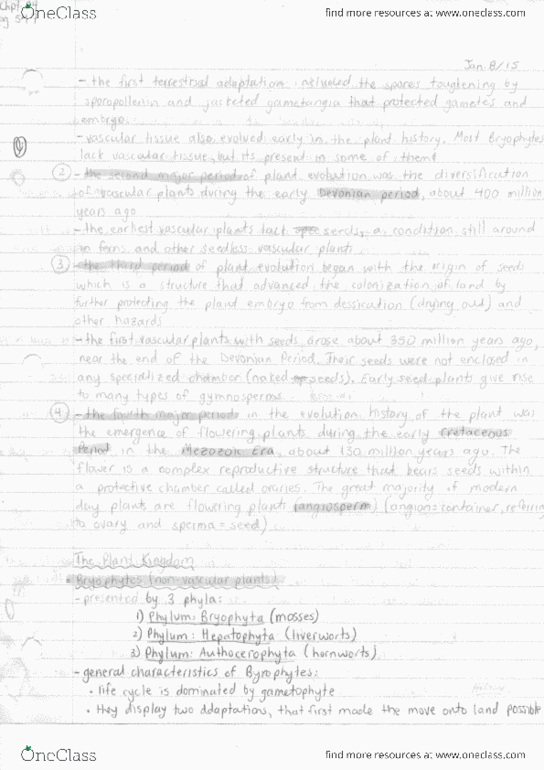 OneClass
find more resources at www.oneclass.com
Jan. 8/15
- the first terrestrial adaptation included the spores toughening by
sporopollenin and jacketed gametangia that protected gametes and
embryo
- vascular tissue also evolved early in the plant history. Most Bryophytes
lack vascular tissue, but its present in some of them
② - the second major period of plant evolution was the diversification
of vascular plants during the early Devonian period, about 400 million
years ago
- the earliest vascular plants lack seeds, a condition still around
in ferns and other seedless vascular plants
③ - the third period of plant evolution began with the origin of seeds
which is a structure that advanced the colonization of land by
further protecting the plant embryo from dessication (drying out) and
other hazards
- the first vascular plants with seeds arose about 350 million years ago,
near the end of the Devonian Period. Their seeds were not enclosed in
any specialized chamber (naked seeds). Early seed plants give rise
to many types of gymnosperms
④ - the fourth major periods in the evolution history of the plant was
the emergence of flowering plants during the early Cretaceous
Period in the Mezozoic Era, about 130 million years ago. The
flower is a complex reproductive structure that bears seeds within
a protective chamber called ovaries. The great majority of modern
day plants are flowering plants (angiosperm) (angion=container, refering
to ovary and sperma=seed)
The Plant Kingdom
Bryophytes (non-vascular plants)
- presented by 3 phyla:
1) Phylum: Bryophyta (mosses)
2) Phylum: Hepatophyta (liverworts)
3) Phylum: Authocerophyta (hornworts)
- general characteristics of Byrophytes:
• life cycle is dominated by gametophyte
• they display two adaptations, that first made the move onto land possible
OneClass
find more resources at www.oneclass.com